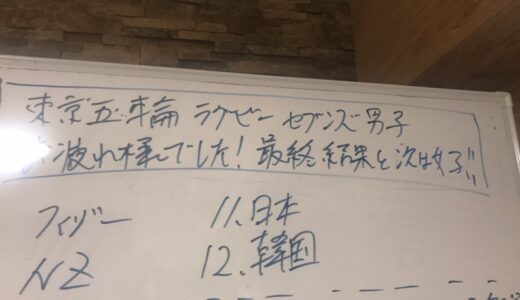 東京五輪 ラグビー セブンズ男子
お疲れ様でした！最終結果と次は女子!!
フィジー
11.日本
NZ
12.韓国